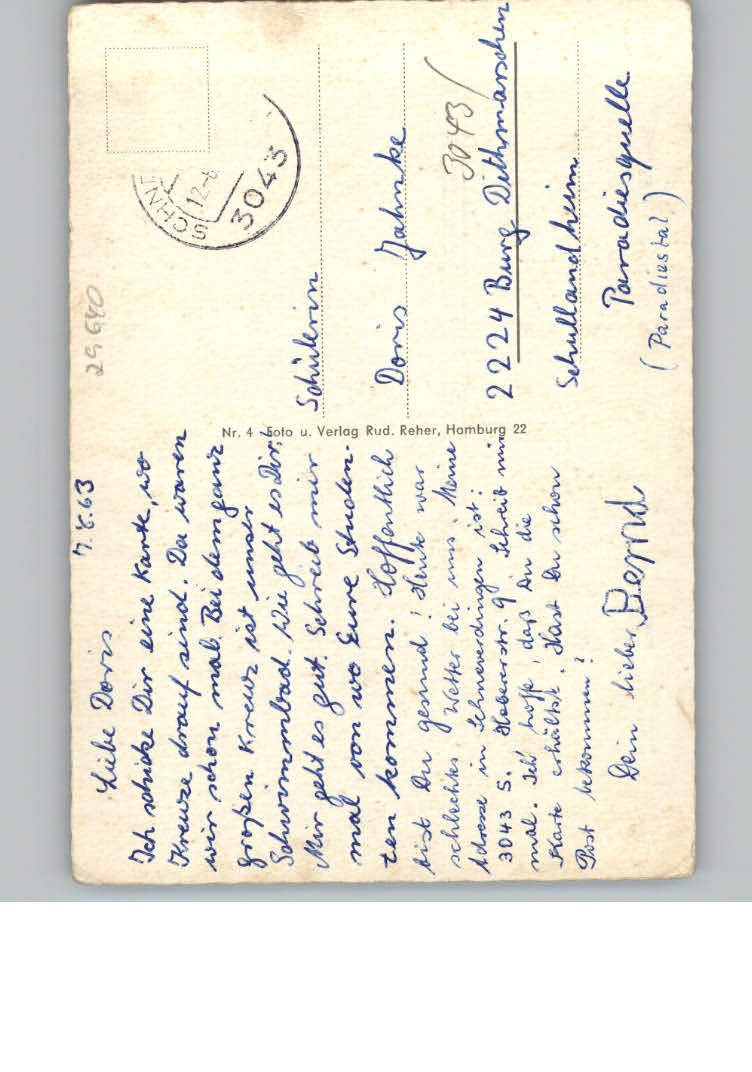 7.8.63
Liebe Doris
Ich schicke Dir eine Karte, wo
Kreuze drauf sind. Da waren
wir schon mal. Bei dem ganz
großen Kreuz ist unser
Schwimmbad. Wie geht es Dir?
Mir geht es gut. Schreib mir
mal von wo Eure Studen-
ten kommen. Hoffentlich
bist Du gesund! Heute war
schlechtes Wetter bei uns! Meine
Adresse in Schneverdingen ist:
3043 S. str. 9 Schreib mir
mal. Ich hoffe, daß Du die
Karte erhältst. Hast Du schon
Post bekommen?
Dein lieber Bernd
Nr. 4 Foto u. Verlag Rud. Reher, Hamburg 22
29640
SCHN
12-8
3043
Schülerin
Doris Jahnke
3043/
2224 Burg Dithmarschen
Schullandheim
Paradiesquelle
(Paradiestal)